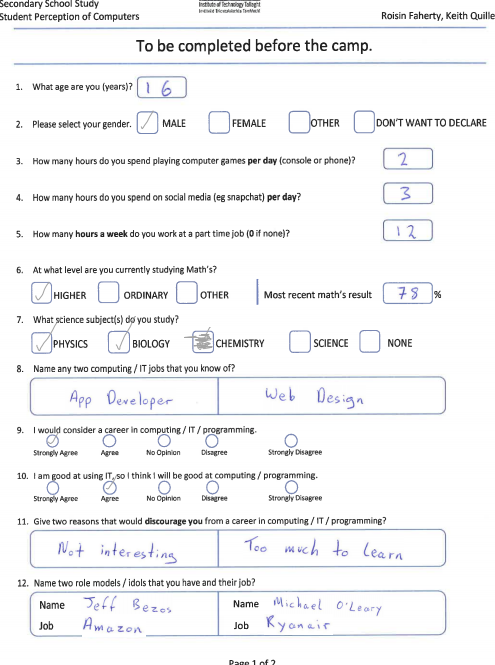 Secondary School Study
Student Perception of Computers
Institute of Technology Tallaght
Roisin Faherty, Keith Quille
To be completed before the camp.
1. What age are you (years)? 16
2. Please select your gender. MALE FEMALE OTHER DON'T WANT TO DECLARE
3. How many hours do you spend playing computer games per day (console or phone)? 2
4. How many hours do you spend on social media (eg snapchat) per day? 3
5. How many hours a week do you work at a part time job (0 if none)? 12
6. At what level are you currently studying Math's?
HIGHER ORDINARY OTHER Most recent math's result 78 %
7. What science subject(s) do you study?
PHYSICS BIOLOGY CHEMISTRY SCIENCE NONE
8. Name any two computing / IT jobs that you know of?
App Developer Web Design
9. I would consider a career in computing / IT / programming.
Strongly Agree Agree No Opinion Disagree Strongly Disagree
10. I am good at using IT, so I think I will be good at computing / programming.
Strongly Agree Agree No Opinion Disagree Strongly Disagree
11. Give two reasons that would discourage you from a career in computing / IT / programming?
Not interesting Too much to learn
12. Name two role models / idols that you have and their job?
Name Jeff Bezos Name Michael O'Leary
Job Amazon Job Ryanair
Page 1 of 2